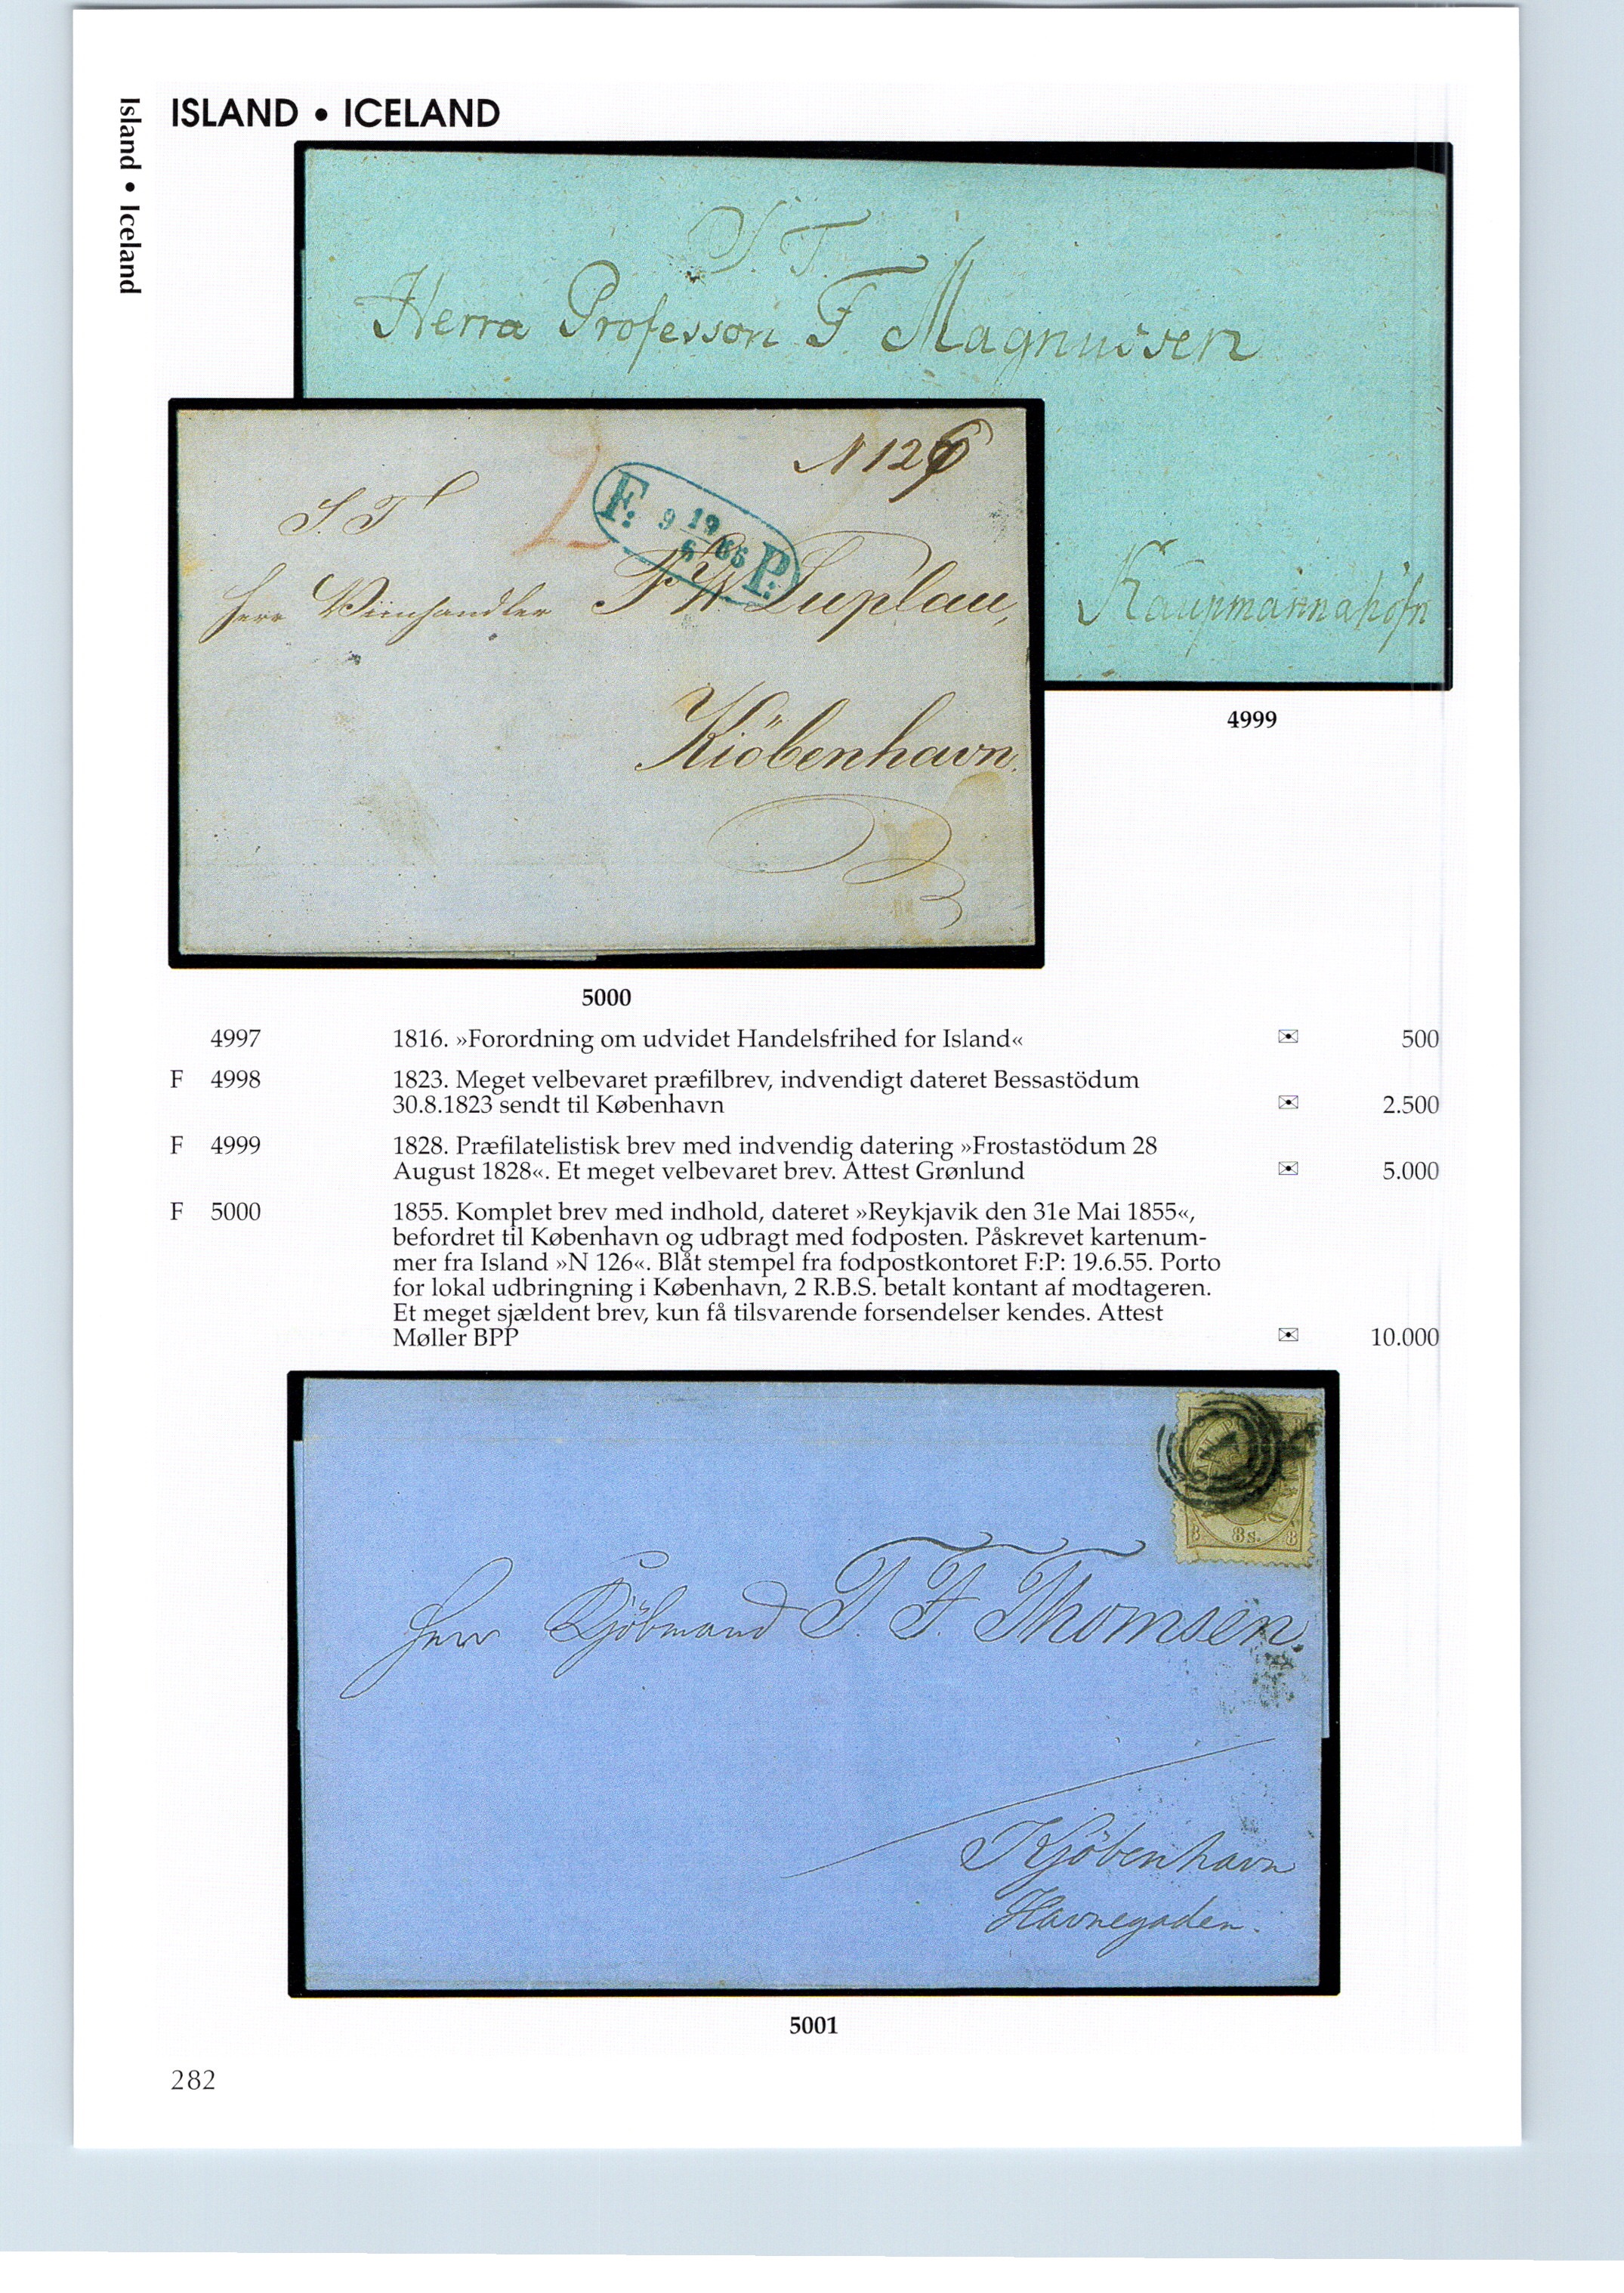 Island • Iceland
ISLAND • ICELAND
S. T.
Herra Professor F Magnussen
Kaupmannahöfn
4999
N 126
F: 19 P:
9 6 55
2
S. T
Herr Viinhandler F W Luplau,
Kiöbenhavn.
5000
4997 1816. »Forordning om udvidet Handelsfrihed for Island« ✉ 500
F 4998 1823. Meget velbevaret præfilbrev, indvendigt dateret Bessastödum
30.8.1823 sendt til København ✉ 2.500
F 4999 1828. Præfilatelistisk brev med indvendig datering »Frostastödum 28
August 1828«. Et meget velbevaret brev. Attest Grønlund ✉ 5.000
F 5000 1855. Komplet brev med indhold, dateret »Reykjavik den 31e Mai 1855«,
befordret til København og udbragt med fodposten. Påskrevet kartenum-
mer fra Island »N 126«. Blåt stempel fra fodpostkontoret F:P: 19.6.55. Porto
for lokal udbringning i København, 2 R.B.S. betalt kontant af modtageren.
Et meget sjældent brev, kun få tilsvarende forsendelser kendes. Attest
Møller BPP ✉ 10.000
1
8 8s. 8
Herr Kjöbmand T. F. Thomsen.
Kjöbenhavn
Havnegaden.
5001
282